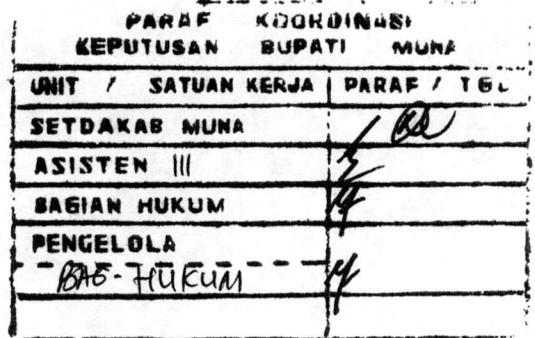 PARAF KOORDINASI
KEPUTUSAN BUPATI MUNA
UNIT / SATUAN KERJA PARAF / TGL
SETDAKAB MUNA
ASISTEN III
BAGIAN HUKUM
PENGELOLA
BAG-HUKUM